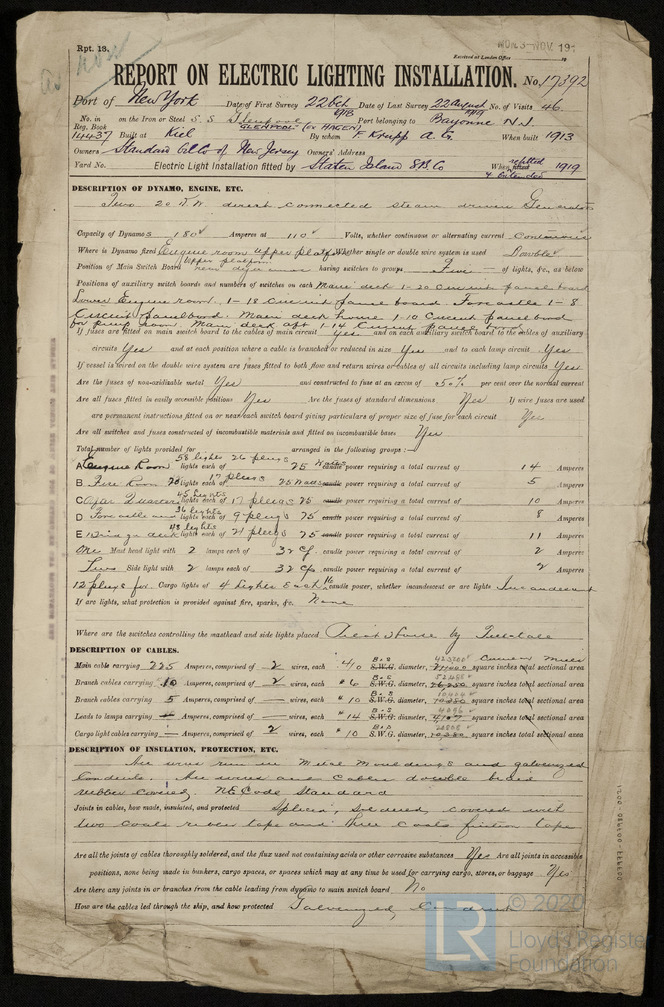 Rpt. 13.
MON. 3-NOV. 191
Received at London Office
REPORT ON ELECTRIC LIGHTING INSTALLATION. No. 17392
Port of New York Date of First Survey 22 Oct 1918 Date of Last Survey 22 August 1919 No. of Visits 46
No. in Reg. Book 14437 on the Iron or Steel S. S. Glenpool Port belonging to Bayonne N.J.
GLENPOOL (ex HAGEN)
Built at Kiel By whom F Krupp A. G. When built 1913
Owners Standard Oil Co of New Jersey Owners' Address
Yard No. Electric Light Installation fitted by Staten Island S.B. Co When fitted refitted & extended 1919
DESCRIPTION OF DYNAMO, ENGINE, ETC.
Two 20 K.W. direct connected steam driven Generators
Capacity of Dynamos 180 Amperes at 110 Volts, whether continuous or alternating current Continuous
Where is Dynamo fixed Engine room upper platform Whether single or double wire system is used Double
Position of Main Switch Board Upper platform near dynamos having switches to groups Five of lights, &c., as below
Positions of auxiliary switch boards and numbers of switches on each Main deck 1-20 Circuit panel board
Lower Engine room 1-18 Circuit panel board Forcastle 1-8
Circuit panelboard. Main deck house 1-10 Circuit panel board
for pump room. Main deck aft 1-14 Circuit panel board
If fuses are fitted on main switch board to the cables of main circuit Yes and on each auxiliary switch board to the cables of auxiliary
circuits Yes and at each position where a cable is branched or reduced in size Yes and to each lamp circuit Yes
If vessel is wired on the double wire system are fuses fitted to both flow and return wires or cables of all circuits including lamp circuits Yes
Are the fuses of non-oxidizable metal Yes and constructed to fuse at an excess of 50% per cent over the normal current
Are all fuses fitted in easily accessible positions Yes Are the fuses of standard dimensions Yes If wire fuses are used
are permanent instructions fitted on or near each switch board giving particulars of proper size of fuse for each circuit Yes
Are all switches and fuses constructed of incombustible materials and fitted on incombustible bases Yes
Total number of lights provided for arranged in the following groups:—
A Engine Room 58 lights 26 plugs lights each of 25 Watts candle power requiring a total current of 14 Amperes
B Fire Room 20 lights each of 17 plugs 25 Watts candle power requiring a total current of 5 Amperes
C After Quarters 45 lights lights each of 17 plugs 25 candle power requiring a total current of 10 Amperes
D Forcastle 36 lights lights each of 9 plugs 25 candle power requiring a total current of 8 Amperes
E Bridge deck 48 lights lights each of 21 plugs 25 candle power requiring a total current of 11 Amperes
One Mast head light with 2 lamps each of 32 Cp candle power requiring a total current of 2 Amperes
Two Side light with 2 lamps each of 32 Cp candle power requiring a total current of 2 Amperes
12 plugs for Cargo lights of 4 lights each 16 candle power, whether incandescent or arc lights Incandescent
If arc lights, what protection is provided against fire, sparks, &c. None
Where are the switches controlling the masthead and side lights placed Pilot House by Tell-tale
DESCRIPTION OF CABLES.
Main cable carrying 225 Amperes, comprised of 2 wires, each 4/0 B&S S.W.G. diameter, square inches total sectional area
Circular Mils
Branch cables carrying 10 Amperes, comprised of 2 wires, each #6 B&S S.W.G. diameter, square inches total sectional area
Branch cables carrying 5 Amperes, comprised of — wires, each #10 B&S S.W.G. diameter, square inches total sectional area
Leads to lamps carrying Amperes, comprised of — wires, each #14 B&S S.W.G. diameter, square inches total sectional area
Cargo light cables carrying — Amperes, comprised of 2 wires, each #10 B&S S.W.G. diameter, square inches total sectional area
DESCRIPTION OF INSULATION, PROTECTION, ETC.
All wires run in Metal Mouldings and galvanized
Conduit. All wires and Cables double braid
rubber Covered. NE Code Standard
Joints in cables, how made, insulated, and protected Spliced, soldered, covered with
two coats rubber tape and three coats friction tape
Are all the joints of cables thoroughly soldered, and the flux used not containing acids or other corrosive substances Yes Are all joints in accessible
positions, none being made in bunkers, cargo spaces, or spaces which may at any time be used for carrying cargo, stores, or baggage Yes
Are there any joints in or branches from the cable leading from dynamo to main switch board No
How are the cables led through the ship, and how protected Galvanized Conduit
© 2020
LR
Lloyd's Register
Foundation